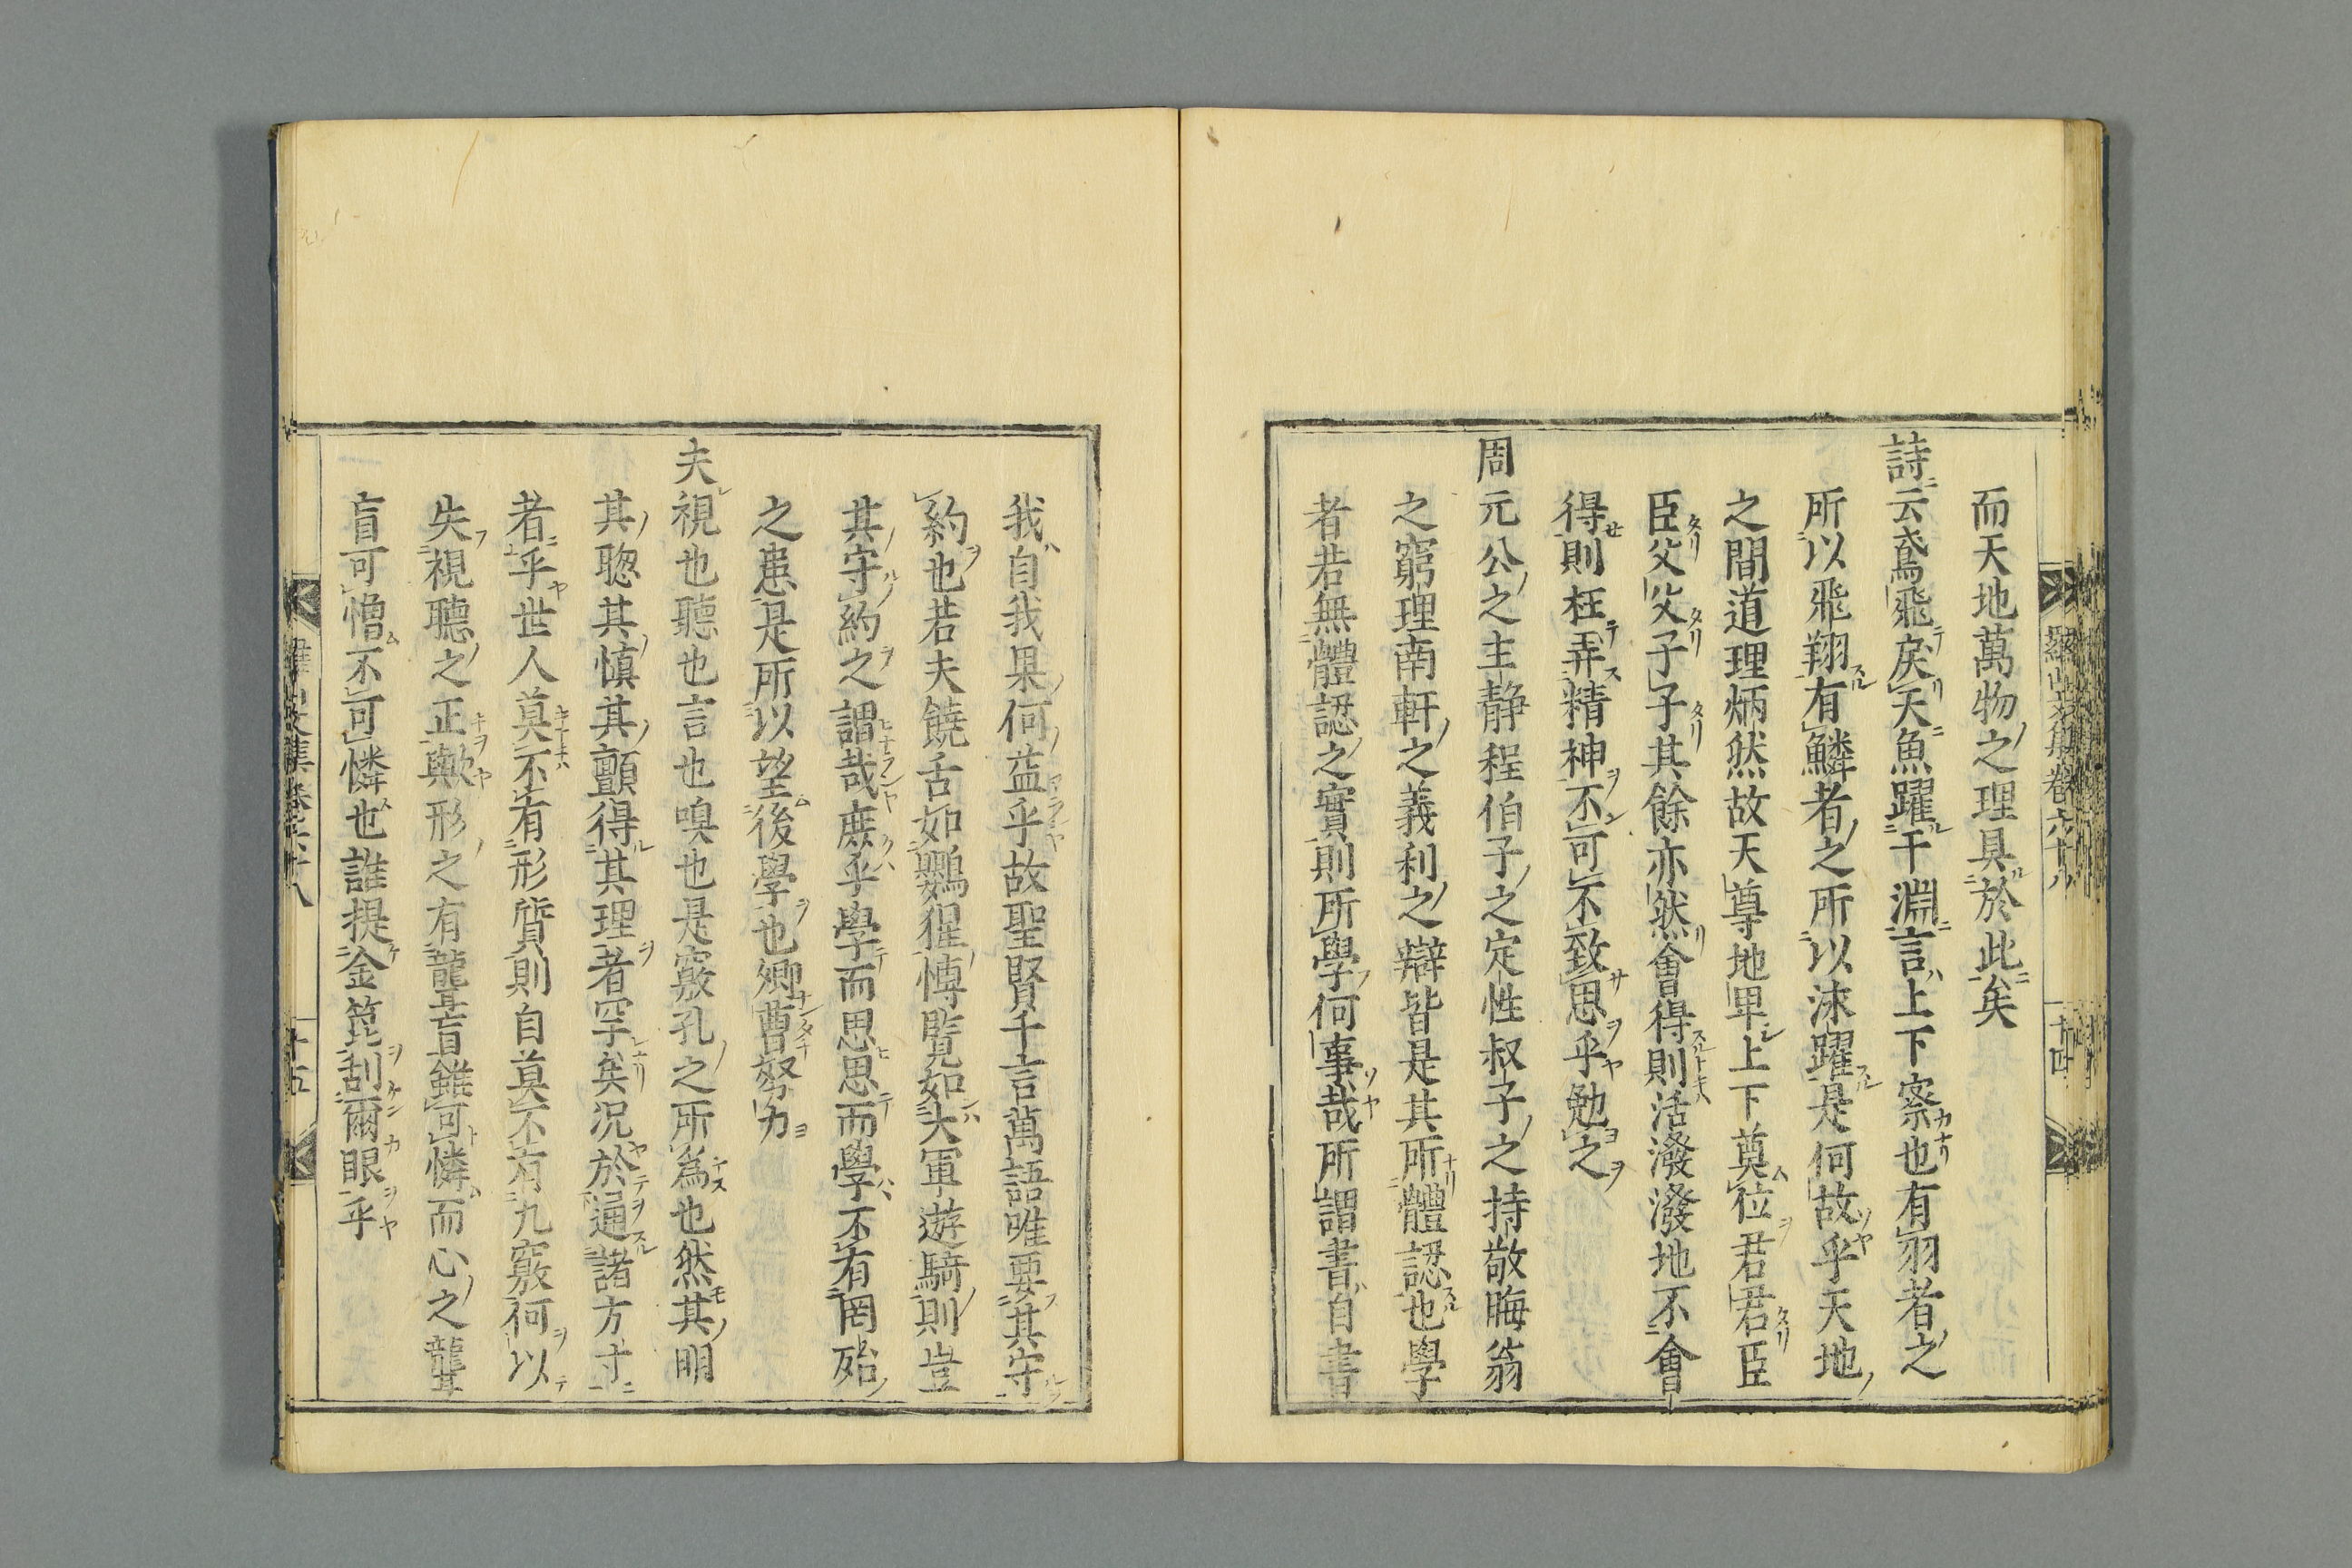 而天地萬物之理具於此矣
詩云鳶飛戾天魚躍于淵言上下察也有羽者之
所以飛翔有鱗者之所以泳躍是何故乎天地
之間道理炳然故天尊地卑上下奠位君君臣
臣父父子子其餘亦然會得則活潑潑地不會
得則枉弄精神不可不致思乎勉之
周元公之主靜程伯子之定性叔子之持敬晦翁
之窮理南軒之義利之辯皆是其所體認也學
者若無體認之實則所學何事哉所謂書自書
羅山文集卷六十八
十四
我自我果何益乎故聖賢千言萬語唯要其守
約也若夫饒舌如鸚猩博覽如大軍遊騎則豈
其守約之謂哉庶乎學而思思而學不有罔殆
之患是所以望後學也卿曹努力
夫視也聽也言也嗅也是竅孔之所為也然其明
其聰其慎其顫得其理者罕矣況於通諸方寸
者乎世人莫不有形質則自莫不有九竅何以
失視聽之正歟形之有聾盲雖可憐而心之聾
盲可憎不可憐也誰提金篦刮爾眼乎
羅山文集卷六十八
十五